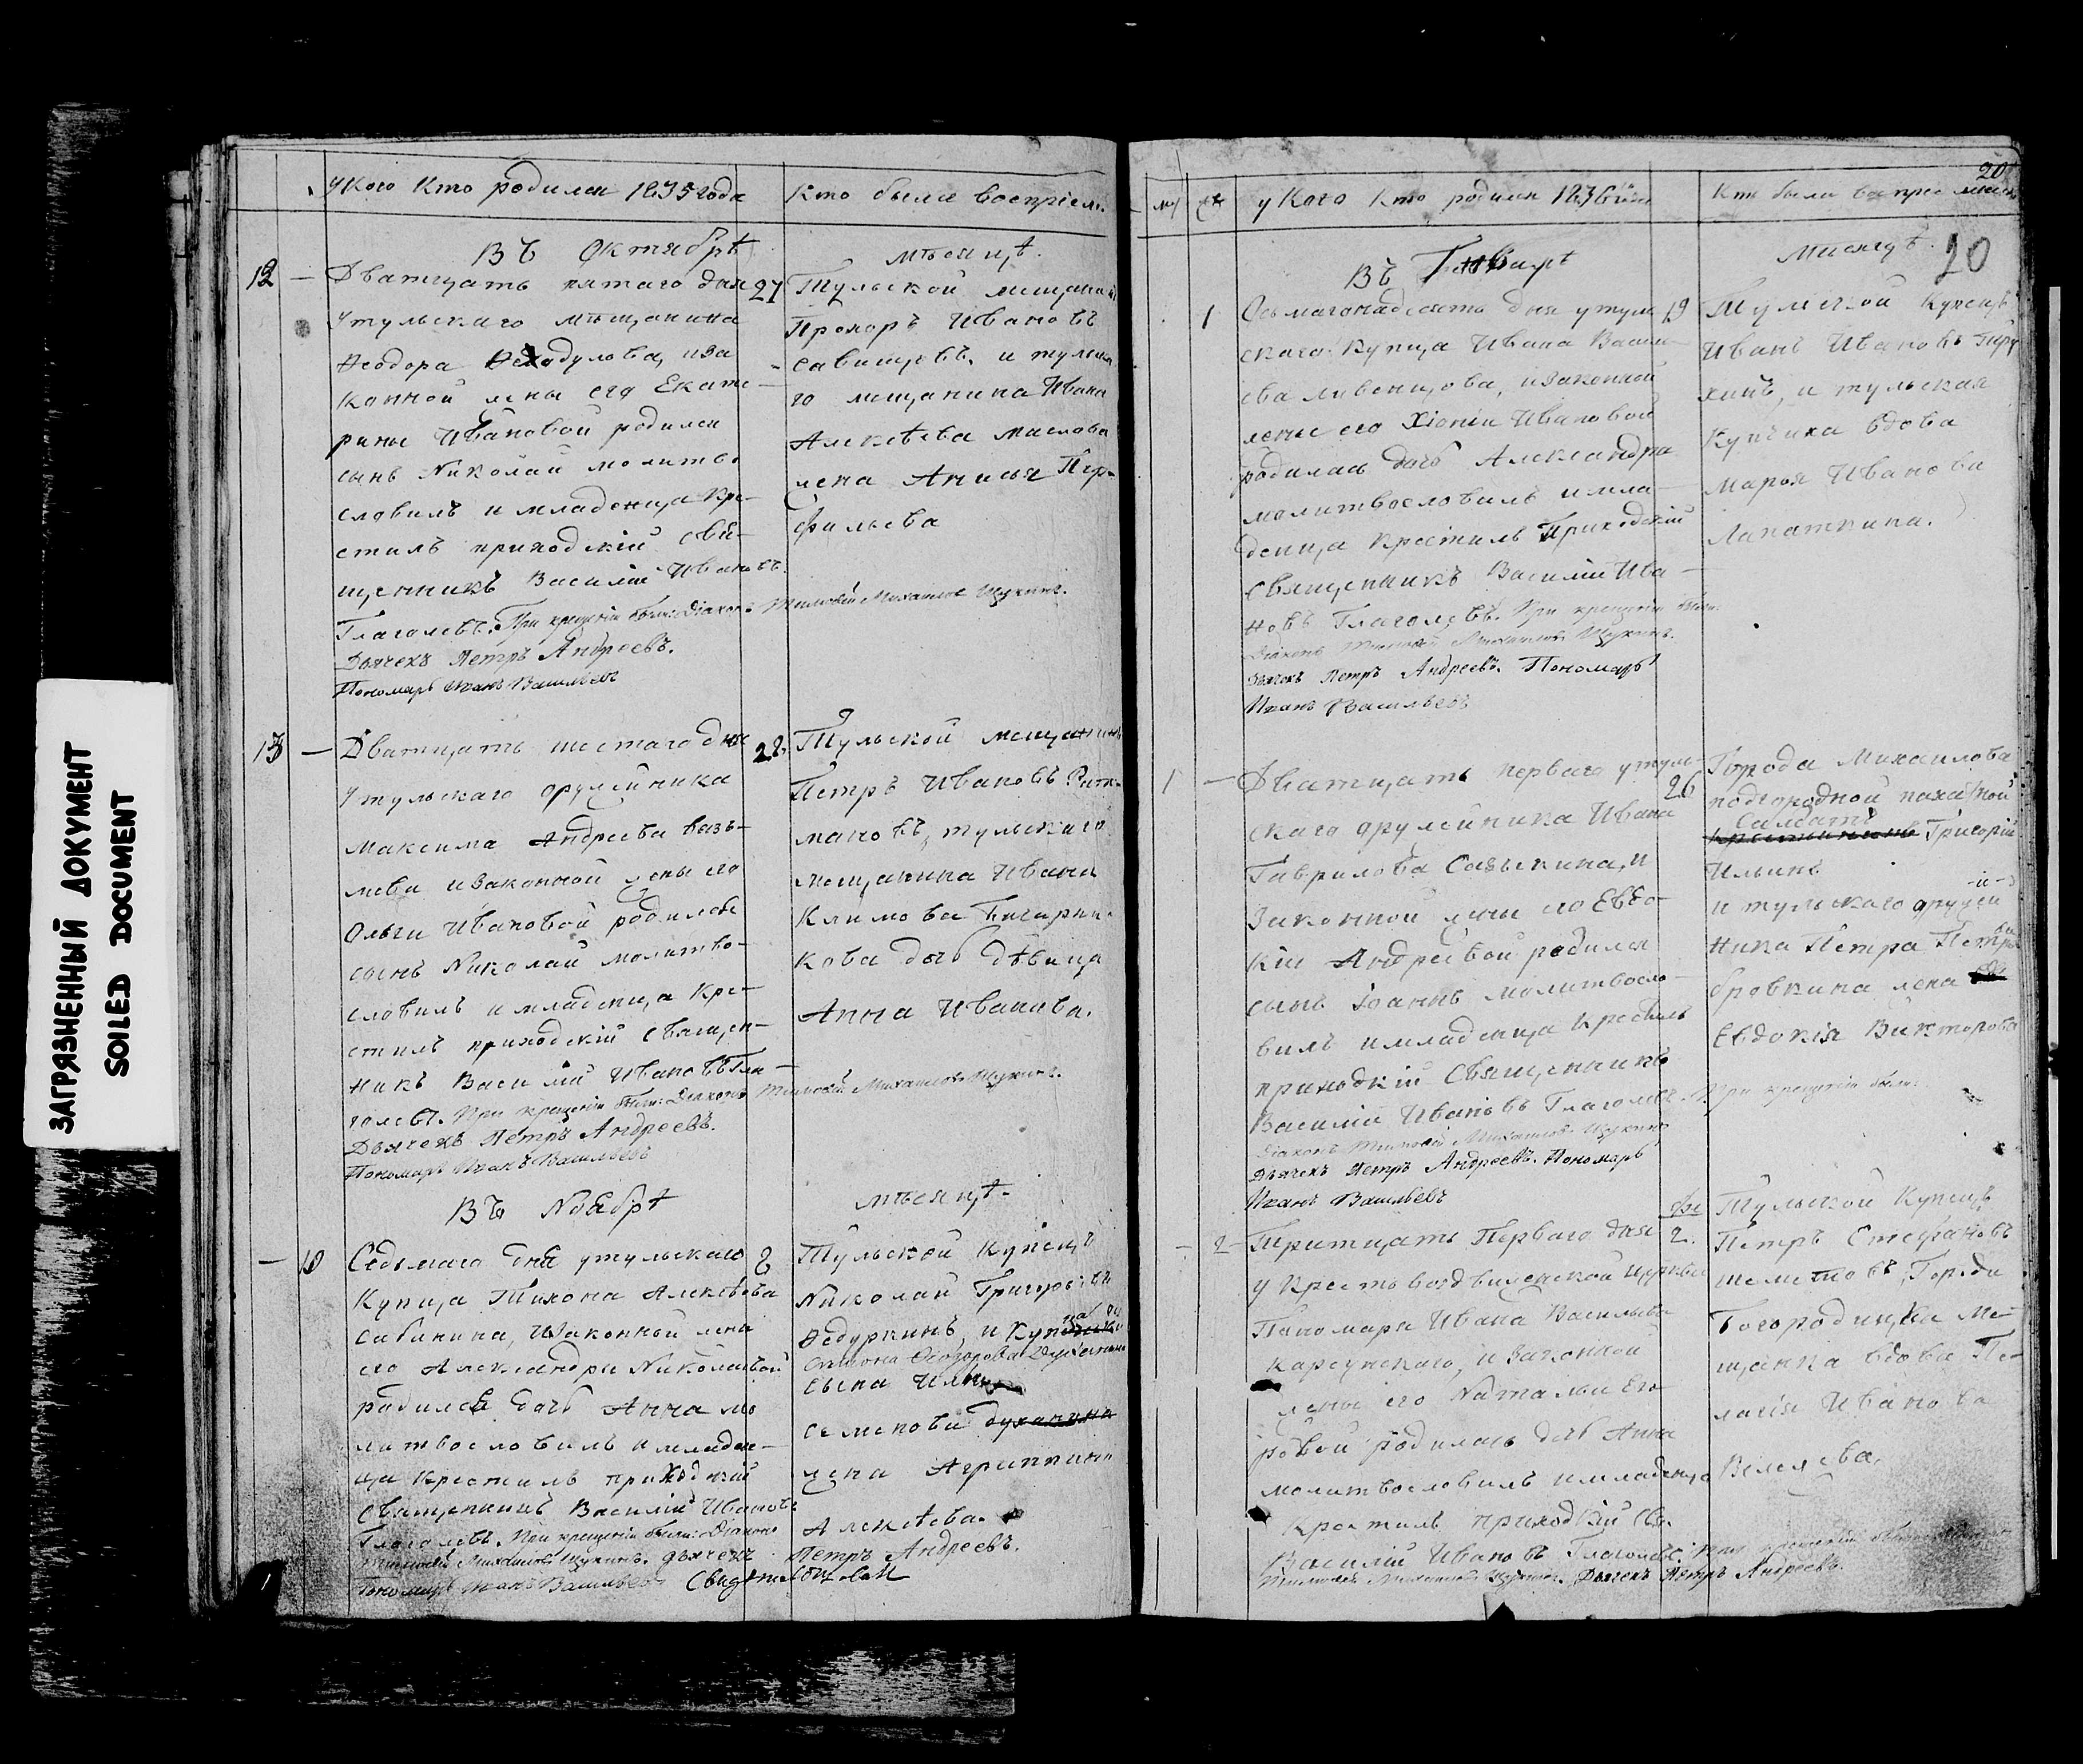 ЗАГРЯЗНЕННЫЙ ДОКУМЕНТ
SOILED DOCUMENT
у Кого Кто родился 1835 года
Кто были восприем.
Въ Октябрѣ
мѣсяцѣ.
12 — Дватцать пятаго дня 27
утульскаго мѣщанина
Ѳеодора
изаконной жены его Екате-
рины Ивановой родился
сынъ Николай молитво
словилъ и младенца кре-
стилъ приходскій Свя-
щенникъ Василій Ивановъ
Глаголевъ. При крещеніи были: Діаконъ Тимоѳей Михайловъ Щукинъ.
Дьячекъ Петръ Андреевъ.
Пономарь Иванъ Васильевъ
Тульской мещанинъ
Прохоръ Ивановъ
и тульска
го мещанина Ивана
Алексѣева Маслова
жена Анисья Пер-
фильева
13 — Дватцать шестаго дня 28.
утульскаго оружейника
Максима Андреева
изаконной жены его
Ольги Ивановой родился
сынъ Николай молитво-
словилъ и младенца Кре-
стилъ приходскій Священ-
никъ Василій Ивановъ Гла-
голевъ. При крещеніи были: Діаконъ Тимоѳей Михайловъ Щукинъ.
Дьячекъ Петръ Андреевъ.
Пономарь Иванъ Васильевъ
Тульской мещанинъ
Петръ Ивановъ
тульскаго
мещанина Ивана
Климова
дочь дѣвица
Анна Иванова.
Въ Ноябрѣ
мѣсяцѣ.
— 10 Седьмаго дня утульскаго 8
Купца Тихона Алексѣева
Сабинина, изаконной жены
его Александры Николаевой
родилась дочь Анна мо
литвословилъ и младен-
ца Крестилъ приходскій
Священникъ Василій Ивановъ
Глаголевъ. При крещеніи были: Діаконъ
Тимоѳей Михайловъ Щукинъ. Дьячекъ Петръ Андреевъ.
Пономарь Иванъ Васильевъ Свидѣтельствовалъ
Тульской Купецъ
Николай Григорьевъ
Ѳедуркинъ, и
сына
жена Агриппина
Алексѣева.
20
м ж у Кого Кто родился 1836 года
Кто были восприемники
20
Въ Генварѣ
мѣсяцѣ.
1 Осьмагонадесять дня утуль 19
скаго Купца Ивана Василь-
ева Ливенцова, изаконной
жены его Хіоніи Ивановой
родилась дочь Александра
молитвословилъ и мла-
денца крестилъ Приходскій
Священникъ Василій Ива-
новъ Глаголевъ. При крещеніи были:
Діаконъ Тимоѳей Михайловъ Щукинъ.
Дьячекъ Петръ Андреевъ. Пономарь
Иванъ Васильевъ
Тульской Купецъ
Иванъ Ивановъ
и тульская
Купчиха вдова
Марья Иванова
Лапаткина.
1 — Дватцать перваго утуль- 26
скаго оружейника Ивана
Гаврилова и
Законной жены его Евдо-
кіи Андреевой родился
сынъ Іоаннъ молитвосло-
вилъ и младенца крестилъ
приходскій Священникъ
Василій Ивановъ Глаголевъ. При крещеніи были:
Діаконъ Тимоѳей Михайловъ Щукинъ
Дьячекъ Петръ Андреевъ. Пономарь
Иванъ Васильевъ
Города Михаилова
подгородной
Григорій
Ильинъ
и тульскаго оружей
ника Петра Петрова
жена
Евдокія Викторова
— 2 — Тритцать Перваго дня Фе 2.
у Крестовоздвиженской церкви
Пономаря Ивана Васильева
и законной
жены его Натальи Его
ровой родилась дочь Анна
молитвословилъ и младенца
Крестилъ приходскій Св.
Василій Ивановъ Глаголевъ. при крещеніи были Діаконъ
Тимоѳей Михайловъ Щукинъ. Дьячекъ Петръ Андреевъ.
Тульской Купецъ
Петръ Стефановъ
Города
Богородицка Ме-
щанка вдова Пе-
лагія Иванова